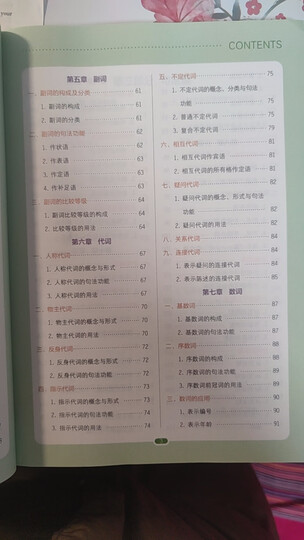 CONTENTS
第五章 副词
一、副词的构成及分类 61
1. 副词的构成 61
2. 副词的分类 61
二、副词的句法功能 62
1. 作状语 62
2. 作表语 62
3. 作定语 63
4. 作补足语 63
三、副词的比较等级 64
1. 副词比较等级的构成 64
2. 比较等级的用法 64
第六章 代词
一、人称代词 67
1. 人称代词的概念与形式 67
2. 人称代词的句法功能 67
3. 人称代词的用法 67
二、物主代词 70
1. 物主代词的概念与形式 70
2. 物主代词的用法 70
三、反身代词 72
1. 反身代词的概念与形式 72
2. 反身代词的句法功能 72
四、指示代词 73
1. 指示代词的概念与形式 73
2. 指示代词的句法功能 74
3. 指示代词的用法 74
五、不定代词 75
1. 不定代词的概念、分类与句法
功能 75
2. 普通不定代词 75
3. 复合不定代词 79
六、相互代词 81
1. 相互代词作宾语 81
2. 相互代词的所有格作定语 81
七、疑问代词 82
1. 疑问代词的概念、形式与句法
功能 82
2. 疑问代词的用法 82
八、关系代词 84
九、连接代词 84
1. 表示疑问的连接代词 84
2. 表示陈述的连接代词 85
第七章 数词
一、基数词 87
1. 基数词的构成 87
2. 基数词的句法功能 87
二、序数词 88
1. 序数词的构成 88
2. 序数词的句法功能 89
3. 序数词前冠词的用法 89
三、数词的应用 90
1. 表示编号 90
2. 表示年龄 91